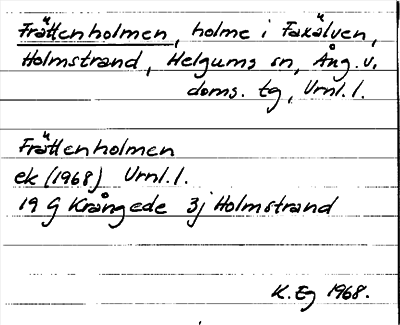 Frättenholmen, holme i Faxälven,
Holmstrand, Helgums sn, Ång. v.
doms. tg, Urnl. l.
Frättenholmen
ek (1968) Urnl. l.
19 G Krångede 3j Holmstrand
K. Eg 1968.